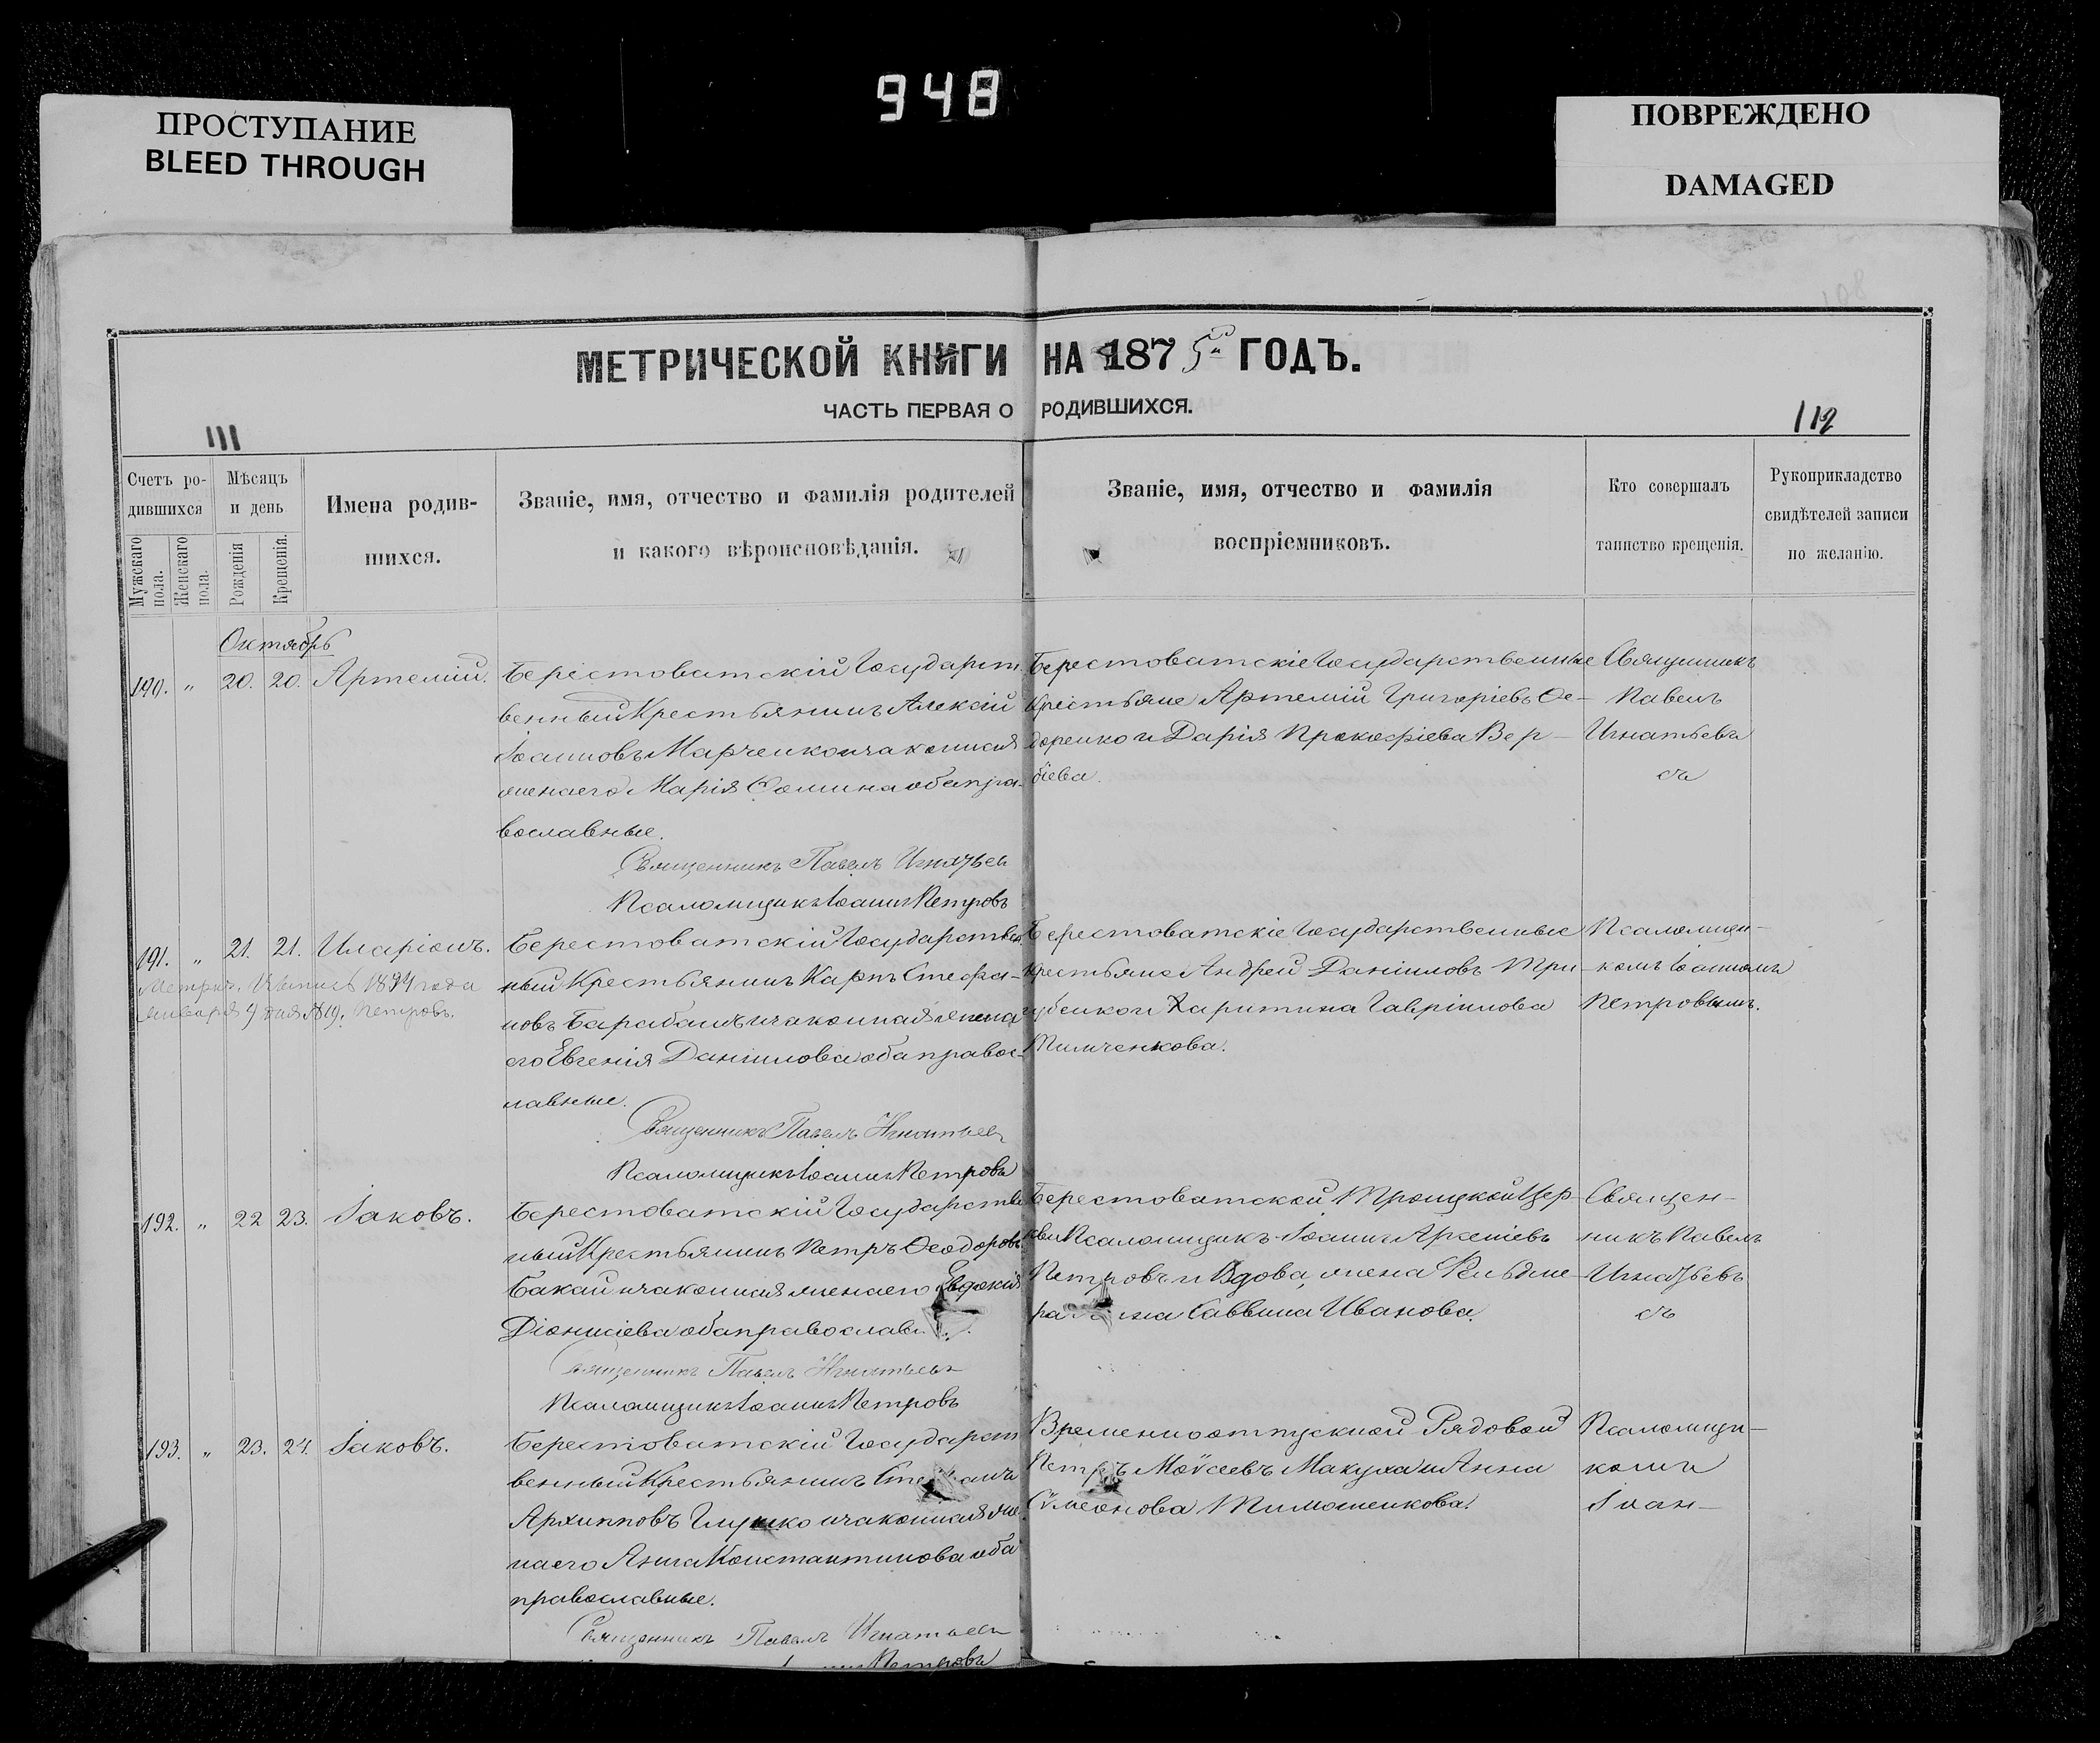 948
ПРОСТУПАНИЕ
BLEED THROUGH
ПОВРЕЖДЕНО
DAMAGED
МЕТРИЧЕСКОЙ КНИГИ НА 1875 ГОДЪ.
ЧАСТЬ ПЕРВАЯ О РОДИВШИХСЯ.
111
112
Счетъ ро-
дившихся
Мужскаго пола.
Женскаго пола.
Мѣсяцъ
и день
Рожденія
Крещенія.
Имена родив-
шихся.
Званіе, имя, отчество и фамилія родителей
и какого вѣроисповѣданія.
Званіе, имя, отчество и фамилія
воспріемниковъ.
Кто совершалъ
таинство крещенія.
Рукоприкладство
свидѣтелей записи
по желанію.
Октябрь
190. „ 20. 20. Артемій.
Берестоватскій Государст
венный Крестьянинъ Алексій
Іоанновъ Марченко и законная
жена его Марія Ѳомина оба пра-
вославные.
Священникъ Павелъ Игнатьев
Псаломщикъ Іоаннъ Петровъ
Берестоватскіе Государственные
Крестьяне Артемій Григоріевъ Ѳе-
доренко и Дарія Прокофіева Вер-
біева.
Священникъ
Павелъ
Игнатьевъ
съ
191. „ 21. 21. Иларіонъ.
Метрич. Выпись 1894 года
Января 4 дня №19. Петровъ.
Берестоватскій Государствен
ный Крестьянинъ Карпъ Стефа-
новъ Барабашъ и законная жена
его Евгенія Даніилова оба правос-
лавные.
Священникъ Павелъ Игнатьев
Псаломщикъ Іоаннъ Петровъ
Берестоватскіе Государственные
Крестьяне Андрей Даніиловъ Три-
губенко и Харитина Гавріилова
Тимченкова.
Псаломщи-
комъ Іоанномъ
Петровымъ.
192. „ 22 23. Іаковъ.
Берестоватскій Государстве
ный Крестьянинъ Петръ Ѳеодоровъ
Бакай и законная жена его Евдокія
Діонисіева оба православн
Священникъ Павелъ Игнатьевъ
Псаломщикъ Іоаннъ Петровъ
Берестоватской Троицкой Цер-
кви Псаломщикъ Іоаннъ Арсеніевъ
Петровъ и Вдова, жена Фельдше-
ра Саввина Иванова.
Священ-
никъ Павелъ
Игнатьевъ
съ
193. „ 23. 24. Іаковъ.
Берестоватскій Государст
венный Крестьянинъ Стефанъ
Архипповъ Глушко и законная же-
на его Анна Константинова оба
православные.
Священникъ Павелъ Игнатьев
Петровъ
Временноотпускной Рядовой
Петръ Моѵсеевъ Макуха и Анна
Сѵмеонова Тимошенкова.
Псаломщи-
комъ
Іоан-